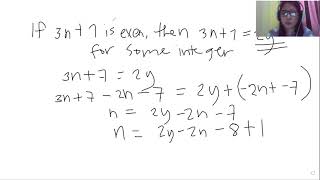 If 3n+7 is even, then 3n+7 = 2y
for some integer
3n+7 = 2y
3n+7 - 2n - 7 = 2y + (-2n + -7)
n = 2y - 2n - 7
n = 2y - 2n - 8 + 1